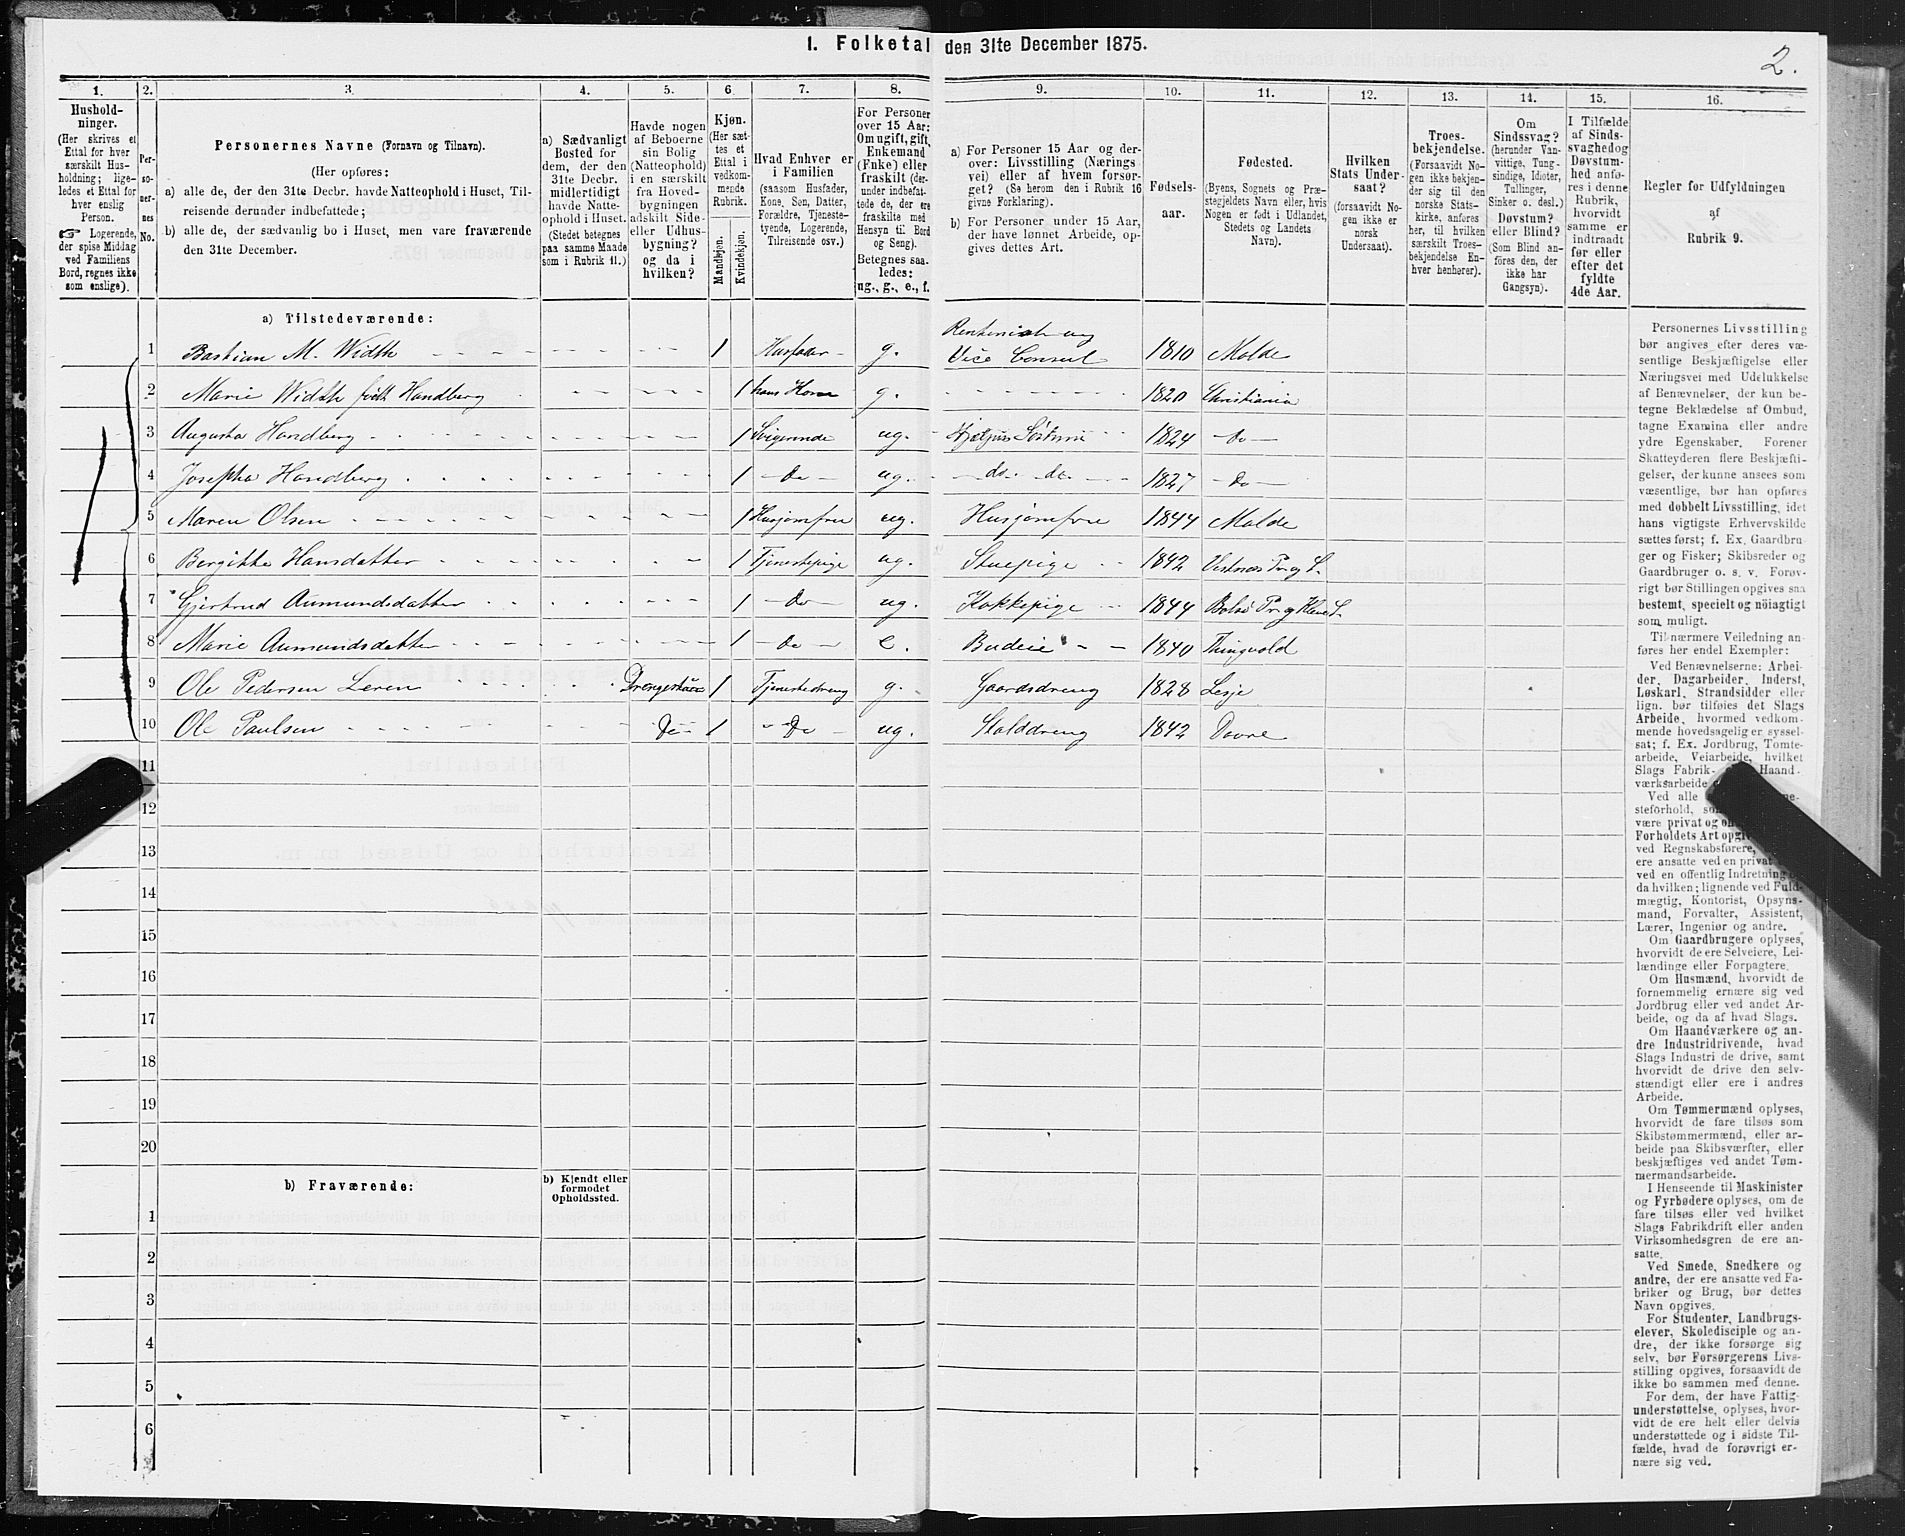 1. Folketal den 31te December 1875.
2.
1. 2. 3. 4. 5. 6. 7. 8. 9. 10. 11. 12. 13. 14. 15. 16.
Hushold-
ninger.
(Her skrives et
Ettal for hver
særskilt Hus-
holdning; lige-
ledes et Ettal for
hver enslig
Person.
☞ Logerende,
der spise Middag
ved Familiens
Bord, regnes ikke
som enslige).
Per-
so-
ner-
nes
No.
Personernes Navne (Fornavn og Tilnavn).
(Her opføres:
a) alle de, der den 31te Decbr. havde Natteophold i Huset, Til-
reisende derunder indbefattede;
b) alle de, der sædvanlig bo i Huset, men vare fraværende
den 31te December.
a) Sædvanligt
Bosted for
dem, der den
31te Decbr.
midlertidigt
havde Natte-
ophold i Huset.
(Stedet betegnes
paa samme Maade
som i Rubrik 11.)
Havde nogen
af Beboerne
sin Bolig
(Natteophold)
i en særskilt
fra Hoved-
bygningen
adskilt Side-
eller Udhus-
bygning?
og da i
hvilken?
Kjøn.
(Her sæt-
tes et
Ettal i
vedkom-
mende
Rubrik.
Mandkjøn.
Kvindekjøn.
Hvad Enhver er
i Familien
(saasom Husfader,
Kone, Søn, Datter,
Forældre, Tjeneste-
tyende, Logerende,
Tilreisende osv.)
For Personer
over 15 Aar:
Om ugift, gift,
Enkemand
(Enke) eller
fraskilt (der-
under indbefat-
tede de, der ere
fraskilte med
Hensyn til Bord
og Seng).
Betegnes saa-
ledes:
ug., g., e., f.
a) For Personer 15 Aar og der-
over: Livsstilling (Nærings
vei) eller af hvem forsør-
get? (Se herom den i Rubrik 16
givne Forklaring).
b) For Personer under 15 Aar,
der have lønnet Arbeide, op-
gives dettes Art.
Fødsels-
aar.
Fødested.
(Byens, Sognets og Præ-
stegjeldets Navn eller, hvis
Nogen er født i Udlandet,
Stedets og Landets
Navn).
Hvilken
Stats Under-
saat?
(forsaavidt No-
gen ikke er
norsk
Undersaat).
Troes-
bekjendelse.
(Forsaavidt No-
gen ikke bekjen-
der sig til den
norske Stats-
kirke, anføres
her, til hvilken
særskilt Troes-
bekjendelse En-
hver henhører).
Om
Sindssvag?
(herunder Van-
vittige, Tung-
sindige, Idioter,
Tullinger,
Sinker o. desl.)
Døvstum?
eller Blind?
(Som Blind an-
føres den, der
ikke har
Gangsyn).
I Tilfælde
af Sinds-
svaghed og
Døvstum-
hed anfø-
res i denne
Rubrik,
hvorvidt
samme er
indtraadt
før eller
efter det
fyldte
4de Aar.
Regler for Udfyldningen
af
Rubrik 9.
a) Tilstedeværende:
1 Bastian M. Width 1 Husfader g. Rentenist og
Vice Consul 1810 Molde
2 Marie Width født Handberg 1 hans Kone g. 1820 Christiania
3 Augusta Handberg 1 Svigerinde ug. 1824 Do
4 Josepha Handberg 1 Do ug. do. do. 1827 Do
5 Maren Olsen 1 Husjomfru ug. Husjomfru 1844 Molde
6 Bergitte Hansdatter 1 Tjenestepige ug. Stuepige 1842 Vestnæs Pr og S.
7 Gjertrud Aumundsdatter 1 Do ug. Kokkepige 1844 Bolsø Pr og S.
8 Marie Aumundsdatter 1 Do e. Budeie 1840 Thingvold
9 Ole Pedersen Leren Drengestuen 1 Tjenestedreng g. Gaardsdreng 1828 Lesje
10 Ole Paulsen Do 1 Do ug. Stalddreng 1842 Dovre
11
12
13
14
15
16
17
18
19
20
b) Fraværende:
b) Kjendt eller
formodet
Opholdssted.
1
2
3
4
5
6
Personernes Livsstilling
bør angives efter deres væ-
sentlige Beskjæftigelse eller
Næringsvei med Udelukkelse
af Benævnelser, der kun be-
tegne Beklædelse af Ombud,
tagne Examina eller andre
ydre Egenskaber. Forener
Skatteyderen flere Beskjæfti-
gelser, der kunne ansees som
væsentlige, bør han opføres
med dobbelt Livsstilling, idet
hans vigtigste Erhvervskilde
sættes først; f. Ex. Gaardbru-
ger og Fisker; Skibsreder og
Gaardbruger o. s. v. Forøv-
rigt bør Stillingen opgives saa
bestemt, specielt og nöiagtigt
som muligt.
Til nærmere Veiledning an-
føres her endel Exempler:
Ved Benævnelserne: Arbei-
der, Dagarbeider, Inderst,
Løskarl, Strandsidder eller
lign. bør tilføies det Slags
Arbeide, hvormed vedkom-
mende hovedsagelig er syssel-
sat; f. Ex. Jordbrug, Tomte-
arbeide, Veiarbeide, hvilket
Slags Fabrik- Haand-
værksarbeide
Ved alle
steforhold,
være privat og
Forholdets Art
ved Regnskabsførere,
ere ansatte ved en privat
ved en offentlig Indretning
da hvilken; lignende ved Fuld-
mægtig, Kontorist, Opsyns-
mand, Forvalter, Assistent,
Lærer, Ingeniør og andre.
Om Gaardbrugere oplyses,
hvorvidt de ere Selveiere, Lei-
lændinge eller Forpagtere.
Om Husmænd, hvorvidt de
fornemmelig ernære sig ved
Jordbrug eller ved andet Ar-
beide, og da af hvad Slags.
Om Haandværkere og an-
dre Industridrivende, hvad
Slags Industri de drive, samt
hvorvidt de drive den selv-
stændigt eller ere i andres
Arbeide.
Om Tømmermænd oplyses,
hvorvidt de fare tilsøs som
Skibstømmermænd, eller ar-
beide paa Skibsværfter, eller
beskjæftiges ved andet Tøm-
mermandsarbeide.
I Henseende til Maskinister
og Fyrbødere oplyses, om de
fare tilsøs eller ved hvilket
Slags Fabrikdrift eller anden
Virksomhedsgren de ere an-
satte.
Ved Smede, Snedkere og
andre, der ere ansatte ved Fa-
briker og Brug, bør dettes
Navn opgives.
For Studenter, Landbrugs-
elever, Skoledisciple og an-
dre, der ikke forsørge sig
selv, bør Forsørgerens Livs-
stilling opgives, forsaavidt de
ikke bo sammen med denne.
For dem, der have Fattig-
understøttelse, oplyses, hvor-
vidt de ere helt eller delvis
understøttede og i sidste Til-
fælde, hvad de forøvrigt er-
nære sig ved.